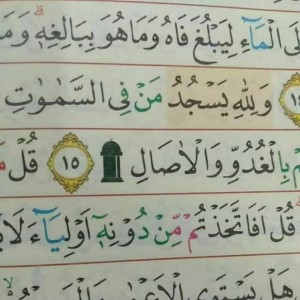 الْمَآءِ لِيَبْلُغَ فَاهُ وَمَا هُوَ بِبَالِغِهٖ وَمَا
وَلِلّٰهِ يَسْجُدُ مَنْ فِي السَّمٰوٰتِ
بِالْغُدُوِّ وَالْاٰصَالِ ١٥ قُلْ
قُلْ اَفَاتَّخَذْتُمْ مِّنْ دُوْنِهٖٓ اَوْلِيَآءَ لَا
هَلْ يَسْتَوِي